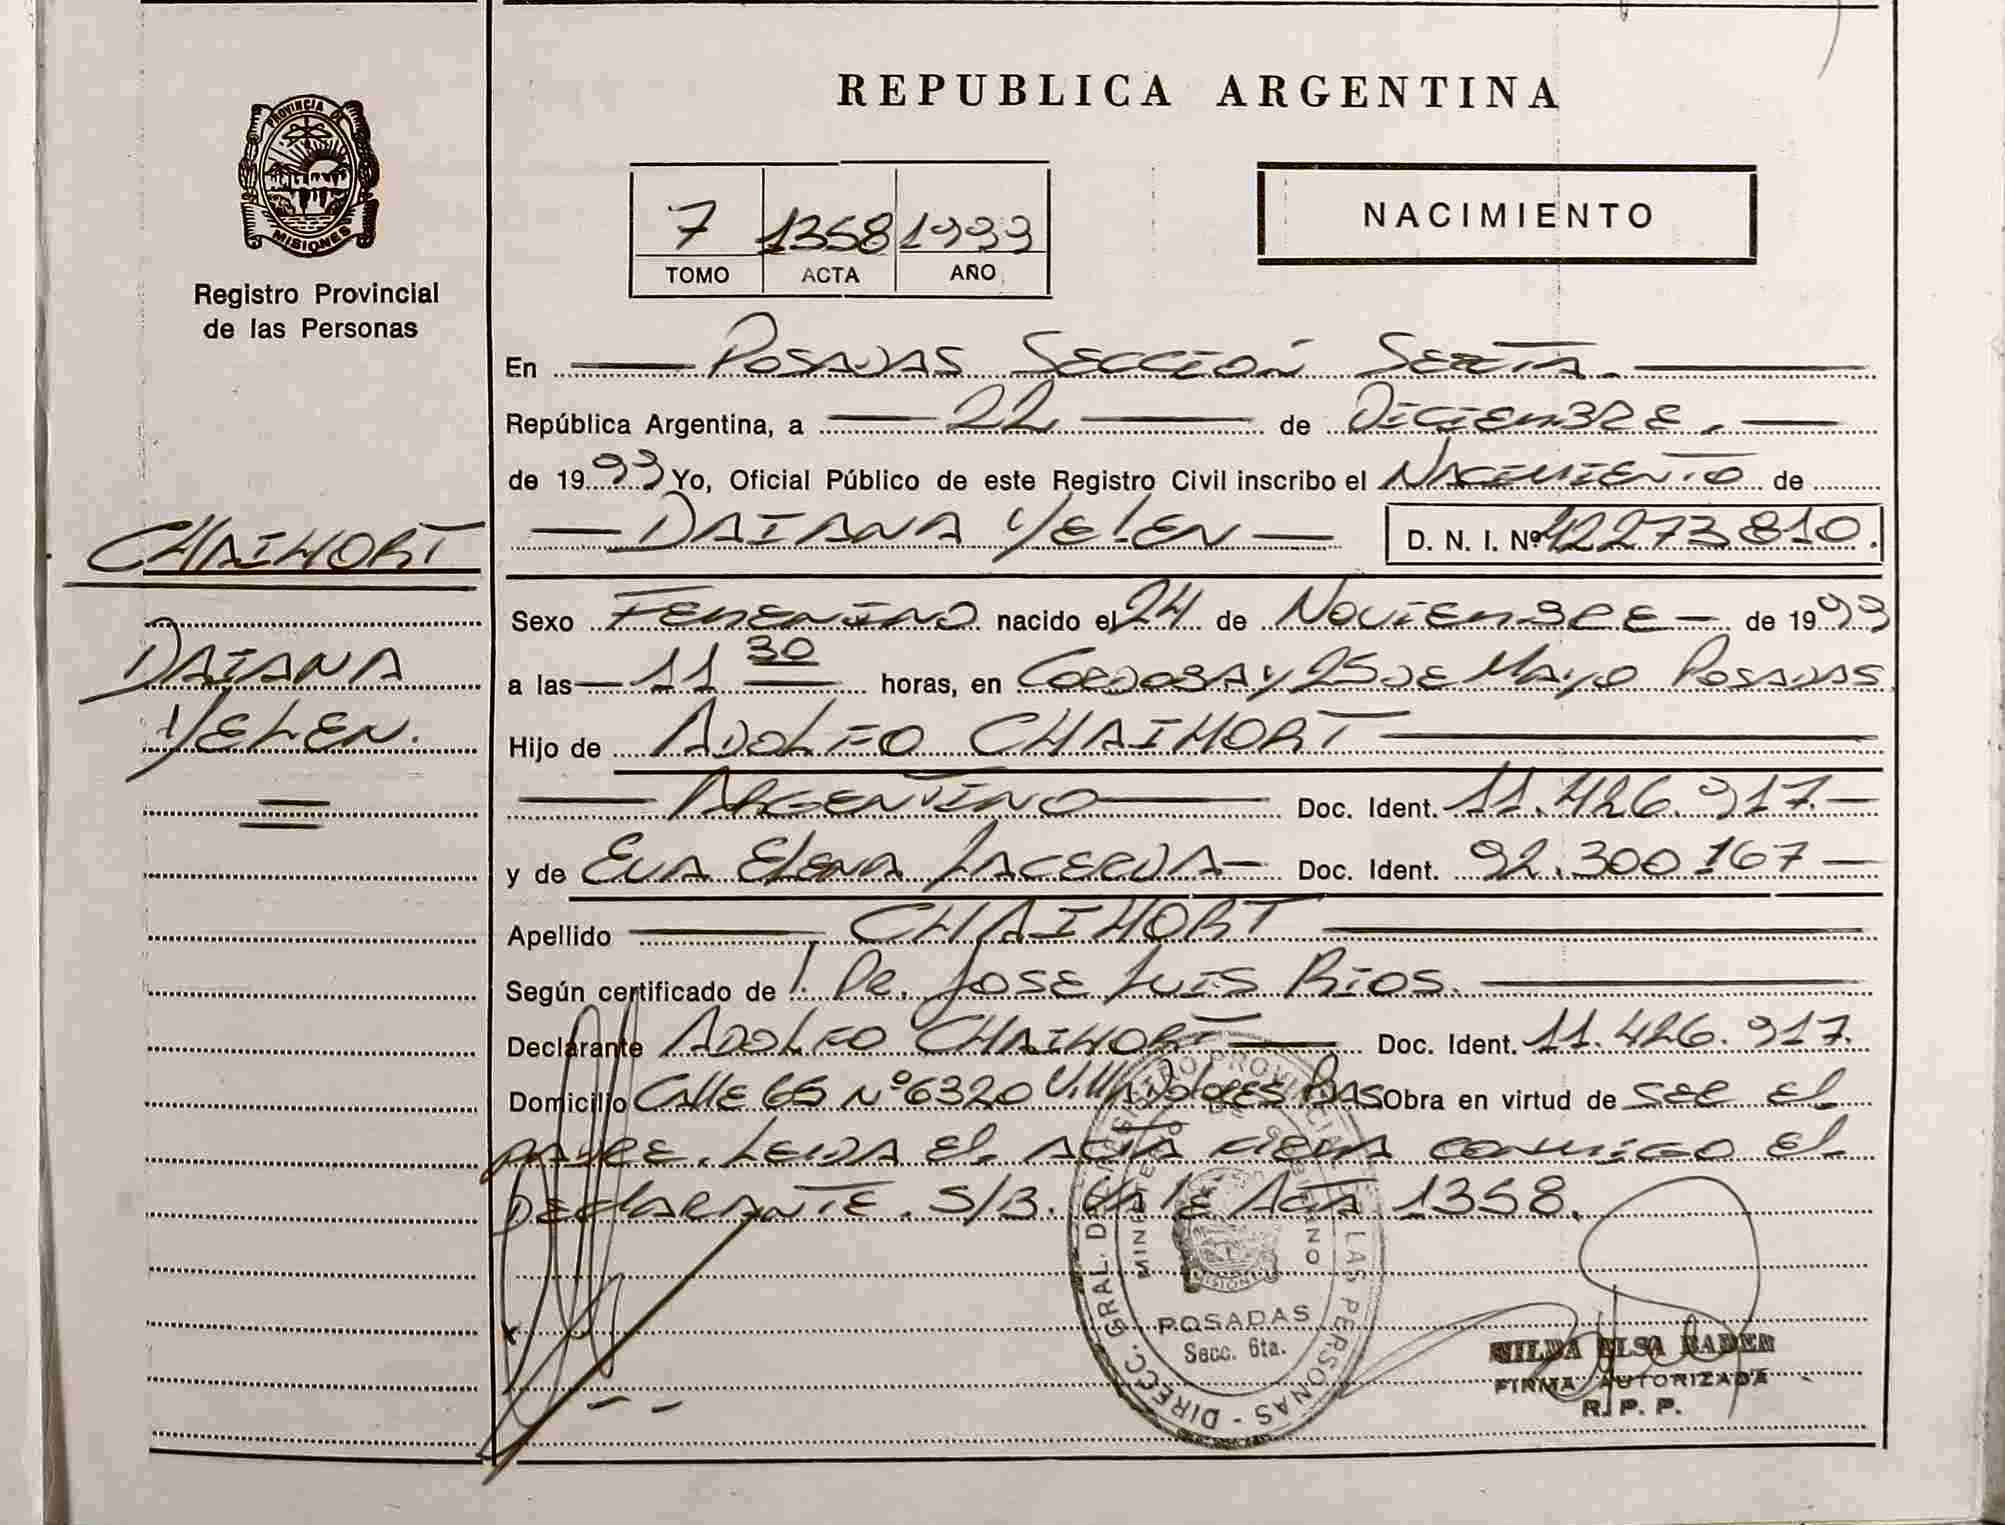 PROVINCIA DE
MISIONES
Registro Provincial
de las Personas
CHAIHORT
DAIANA
YELEN.
REPUBLICA ARGENTINA
7 1358 1993
TOMO ACTA AÑO
NACIMIENTO
En POSADAS SECCION SEXTA.
República Argentina, a 22 de DICIEMBRE.
de 1993 Yo, Oficial Público de este Registro Civil inscribo el NACIMIENTO de
DAIANA YELEN D. N. I. Nº 42273810.
Sexo FEMENINO nacido el 24 de NOVIEMBRE de 1993
a las 11 30 horas, en CORDOBA Y 25 DE MAYO POSADAS
Hijo de ADOLFO CHAIHORT
ARGENTINO Doc. Ident. 11.426.917.
y de EVA ELENA LACERDA Doc. Ident. 92.300167
Apellido CHAIHORT
Según certificado de Dr. JOSE LUIS RIOS.
Declarante ADOLFO CHAIHORT Doc. Ident. 11.426.917.
Domicilio CALLE 65 Nº 6320 Villa Dolores PDAS Obra en virtud de SER EL
PADRE. LEIDA EL ACTA FIRMA CONMIGO EL
DECLARANTE. S/B. VALE ACTA 1358.
DIRECC. GRAL. DEL REGISTRO PROVINCIAL DE LAS PERSONAS
MINISTERIO DE GOBIERNO
MISIONES
POSADAS
Secc. 6ta.
ELSA
FIRMA AUTORIZADA
R. P. P.